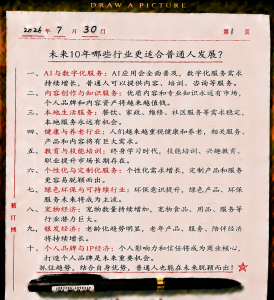 DRAW A PICTURE
2026 年 7 月 30 日 第 1 页
未来10年哪些行业更适合普通人发展?
一、AI与数字化服务：AI应用会全面普及，数字化服务需求
持续增长，普通人可以提供内容、培训、咨询等服务。
二、内容创作与知识服务：优质内容和专业知识永远有市场，
个人品牌和内容资产将越来越值钱。
三、本地生活服务：餐饮、家政、维修、社区服务等需求稳定，
本地服务永远有机会。
四、健康与养老行业：人们越来越重视健康和养老，相关服务、
产品和内容将有巨大需求。
五、教育与技能培训：终身学习时代，技能培训、兴趣教育、
职业提升市场长期存在。
六、个性化与定制化服务：个性化需求增长，定制产品和服务
更容易脱颖而出。
七、绿色环保与可持续行业：环保意识提升，绿色产品、环保
服务未来将成为主流。
八、宠物经济：宠物数量持续增加，宠物食品、用品、服务等
行业潜力巨大。
九、银发经济：老龄化趋势明显，老年产品、服务、陪伴经济
将持续增长。
十、个人品牌与IP经济：个人影响力和信任将成为商业核心，
打造个人品牌是未来重要机会。
抓住趋势，结合自身优势，普通人也能在未来脱颖而出！
装订线